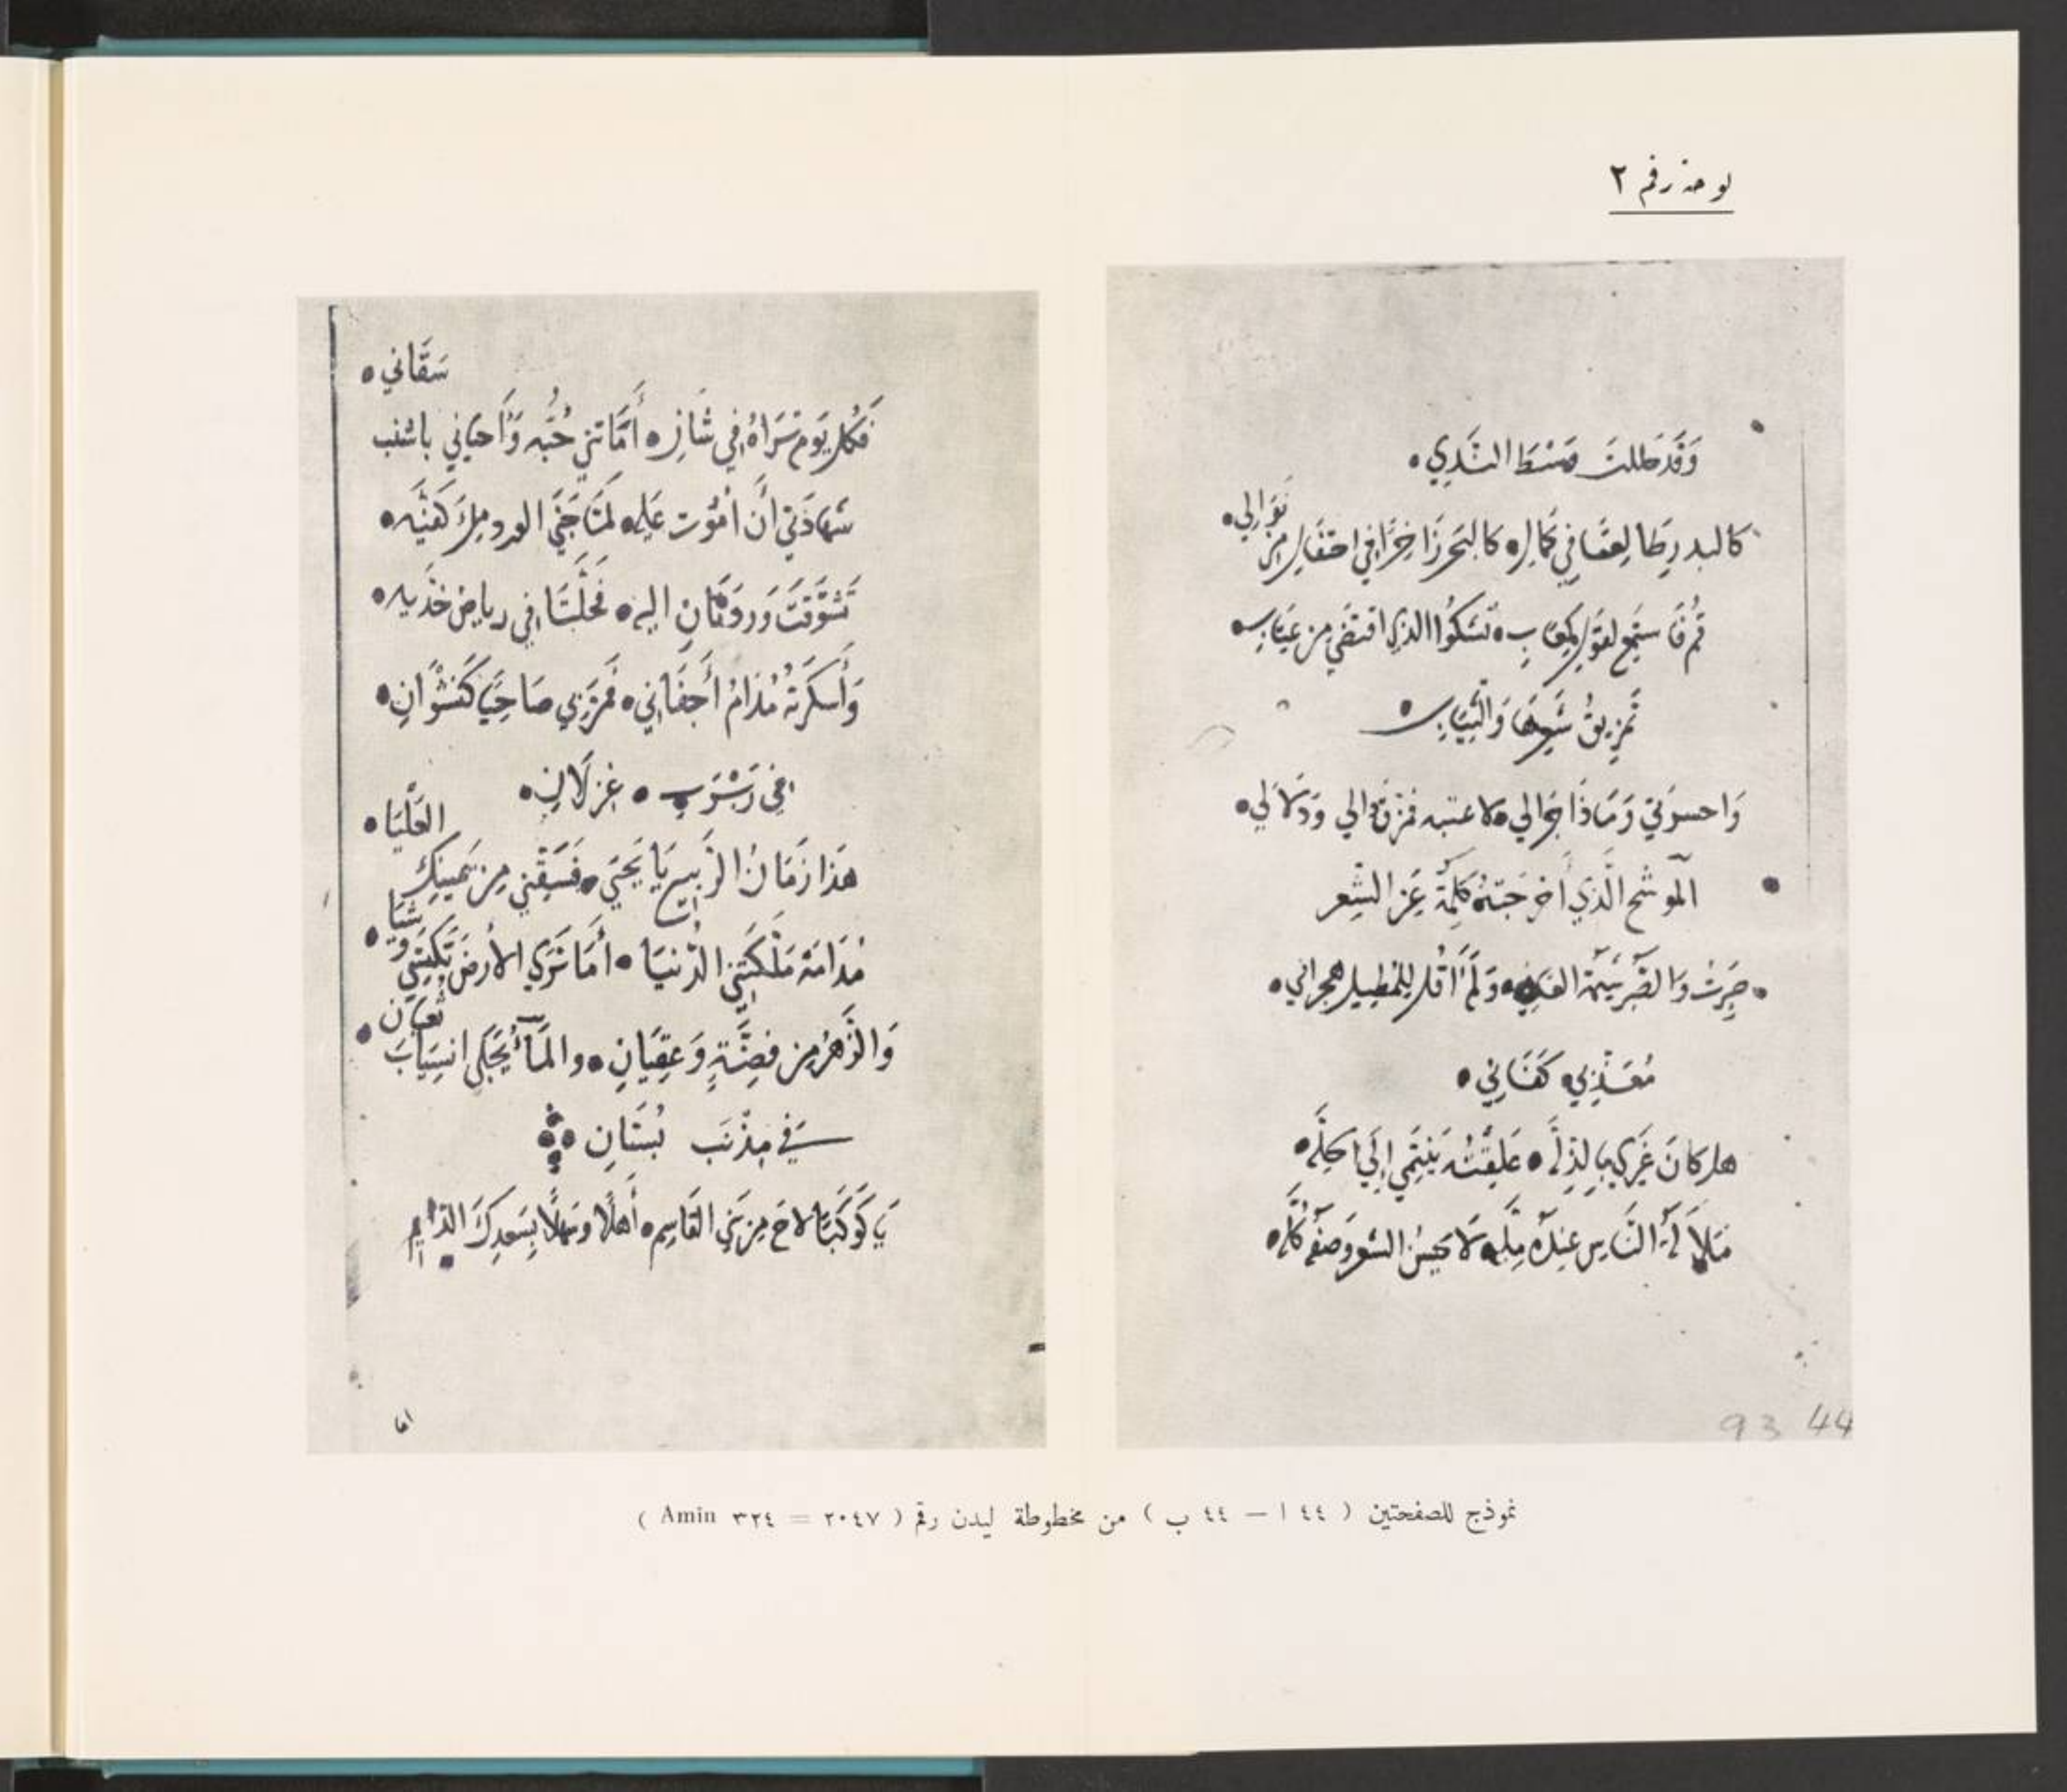 لوحة رقم ٢
وَقَد ظللت وسْط النَّدِي
نَوَالِه
كالبدر طالعًا في كَمَالِه كالبَحر زَاخِرًا في احتفَالِ من
قُم فَاستَمِع لقَول كِعَاب تَشكُوا الذِي اقتضَي من عِتَاب
تَمزِيقُ شَعرِهَا وَالثِّيَاب
وَاحسرَتي وَمَاذَا جَرالي مزق دلالي
المُوشح الَّذي أَخرجَتهُ كَلِمَةٌ عَن الشِّعر
صَبَرتُ وَالصَّبرُ شِيمَةُ العَانِي وَلَم أَقُل لِلمُطِيل هجرَاني
مُعَذِّبِي كَفَانِي
هل كانَ غَيري بالذلِّ عَلِقتُه يَنتَمي إلَي
النَّاس عِندَهُ مِثله لاَ يحسِنُ الشعر وَصفَهُ كُلَّه
93 44
سَقَاني
فَكُل يَوم تَرَاهُ في شَانِ أَمَاتَنِي حُبُّه وَأَحيَانِي باشنب
شهَادَتي أَن أَمُوت عَليه لمَّا جَنَى الورد مِلءَ كَفيْه
تَشوَّقَت وَردَتَانِ اليه فَحَلَّتَا في رياض خدَّيه
وَأَسكَرَتهُ مُدَامُ أَجفَانِي فَمَرَّ بِي صَاحِيًا كَنَشْوَانِ
في رَبْرَب غِزلاَنِ
العَلْيَا
هَذا زَمَانُ الرَّبِيع يَا يَحيَى فَسَقِّنِي مِن يَمِينِكَ
وشيَا
مُدَامَة مَلَّكَتنِي الدُّنيَا أَمَا تَرَى الأَرضَ تَكتَسِي
ثعبَان
وَالزَّهرُ مِن فِضَّةٍ وَعِقيَانِ والمَآءُ يَحكِي انسِيَابَ
في مِذْنَب بُستَانِ
يَا كَوكَبًا لاحَ مِن بَنِي القَاسِم أَهلًا وسَهلًا بِسَعدِكَ الدَّايم
نموذج للصفحتين ( ٤٤ ا — ٤٤ ب ) من مخطوطة ليدن رقم ( ٢٠٤٧ = ٣٢٤ Amin )